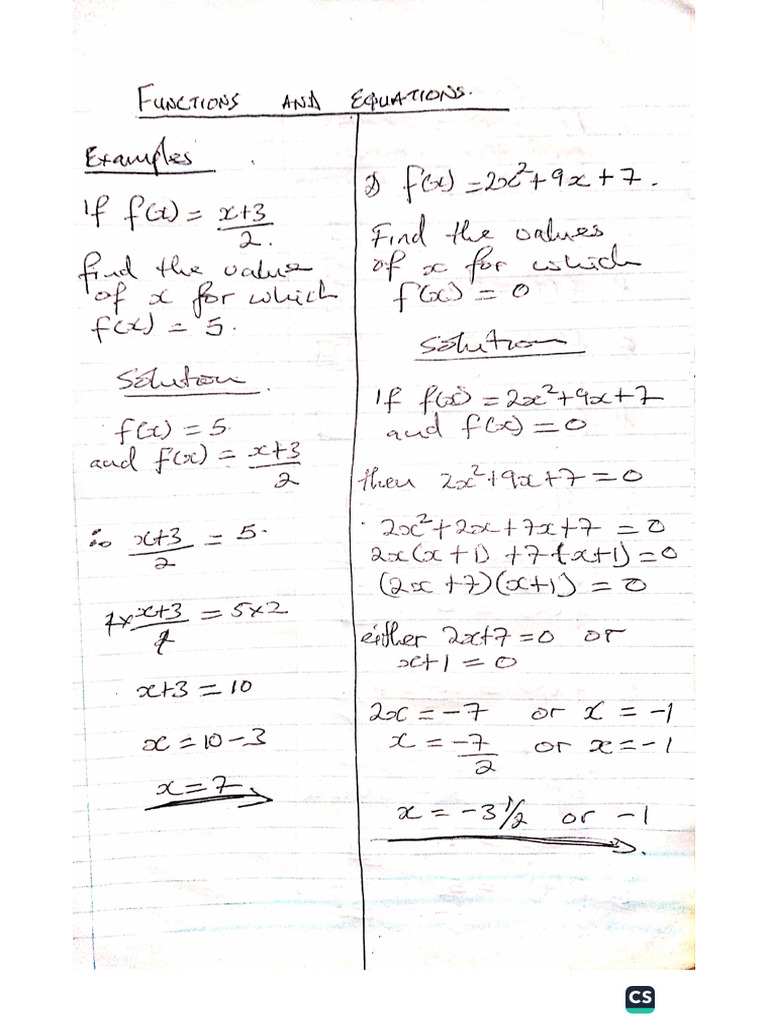 FUNCTIONS AND EQUATIONS.
Examples
If f(x) = x+3
2.
find the value
of x for which
f(x) = 5.
Solution
f(x) = 5.
and f(x) = x+3
2
x+3 = 5.
2
x+3 = 5x2
x+3 = 10
x = 10-3
x = 7
f(x) = 2x²+9x+7.
Find the values
of x for which
f(x) = 0
Solution
If f(x) = 2x²+9x+7
and f(x) = 0
then 2x²+9x+7 = 0
2x²+2x+7x+7 = 0
2x(x+1) +7(x+1) = 0
(2x+7)(x+1) = 0
either 2x+7 = 0 or
x+1 = 0
2x = -7 or x = -1
x = -7 or x = -1
2
x = -3 1/2 or -1
CS